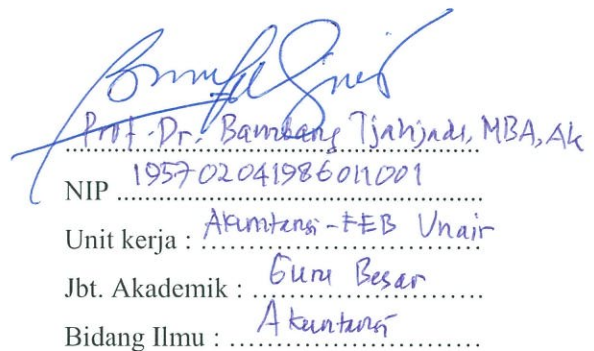 Prof. Dr. Bambang Tjahjadi, MBA, Ak
NIP 195702041986011001
Unit kerja : Akuntansi - FEB Unair
Jbt. Akademik : Guru Besar
Bidang Ilmu : Akuntansi